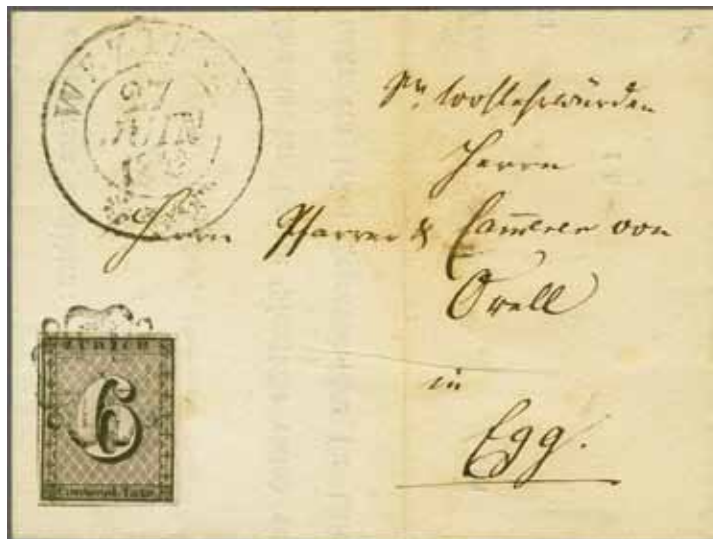 27
JUIN
Wohlehrwürden
Herrn
Herrn Pfarrer & Cam̅erer von
Orell
in
Egg.
ZÜRICH
6
Cantonal-Taxe